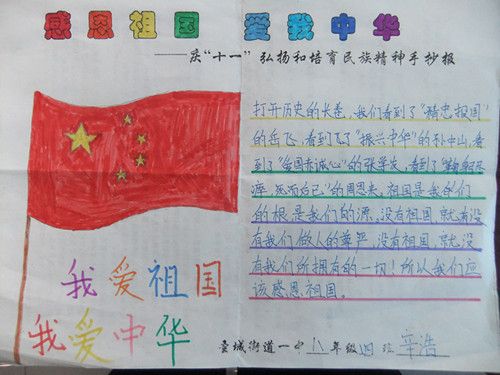 感恩祖国 爱我中华
——庆“十一”弘扬和培育民族精神手抄报
打开历史的长卷，我们看到了“精忠报国”
的岳飞，看到了“振兴中华”的孙中山，看
到了“爱国赤诚心”的张学友，看到了
死而后已”的周恩来，祖国是我们
的根是我们的源，没有祖国，就没有
有我们做人的尊严，没有祖国，就没
有我们所拥有的一切！所以我们应
该感恩祖国。
我爱祖国
我爱中华
城街道一中 八年级 四 班 辛浩